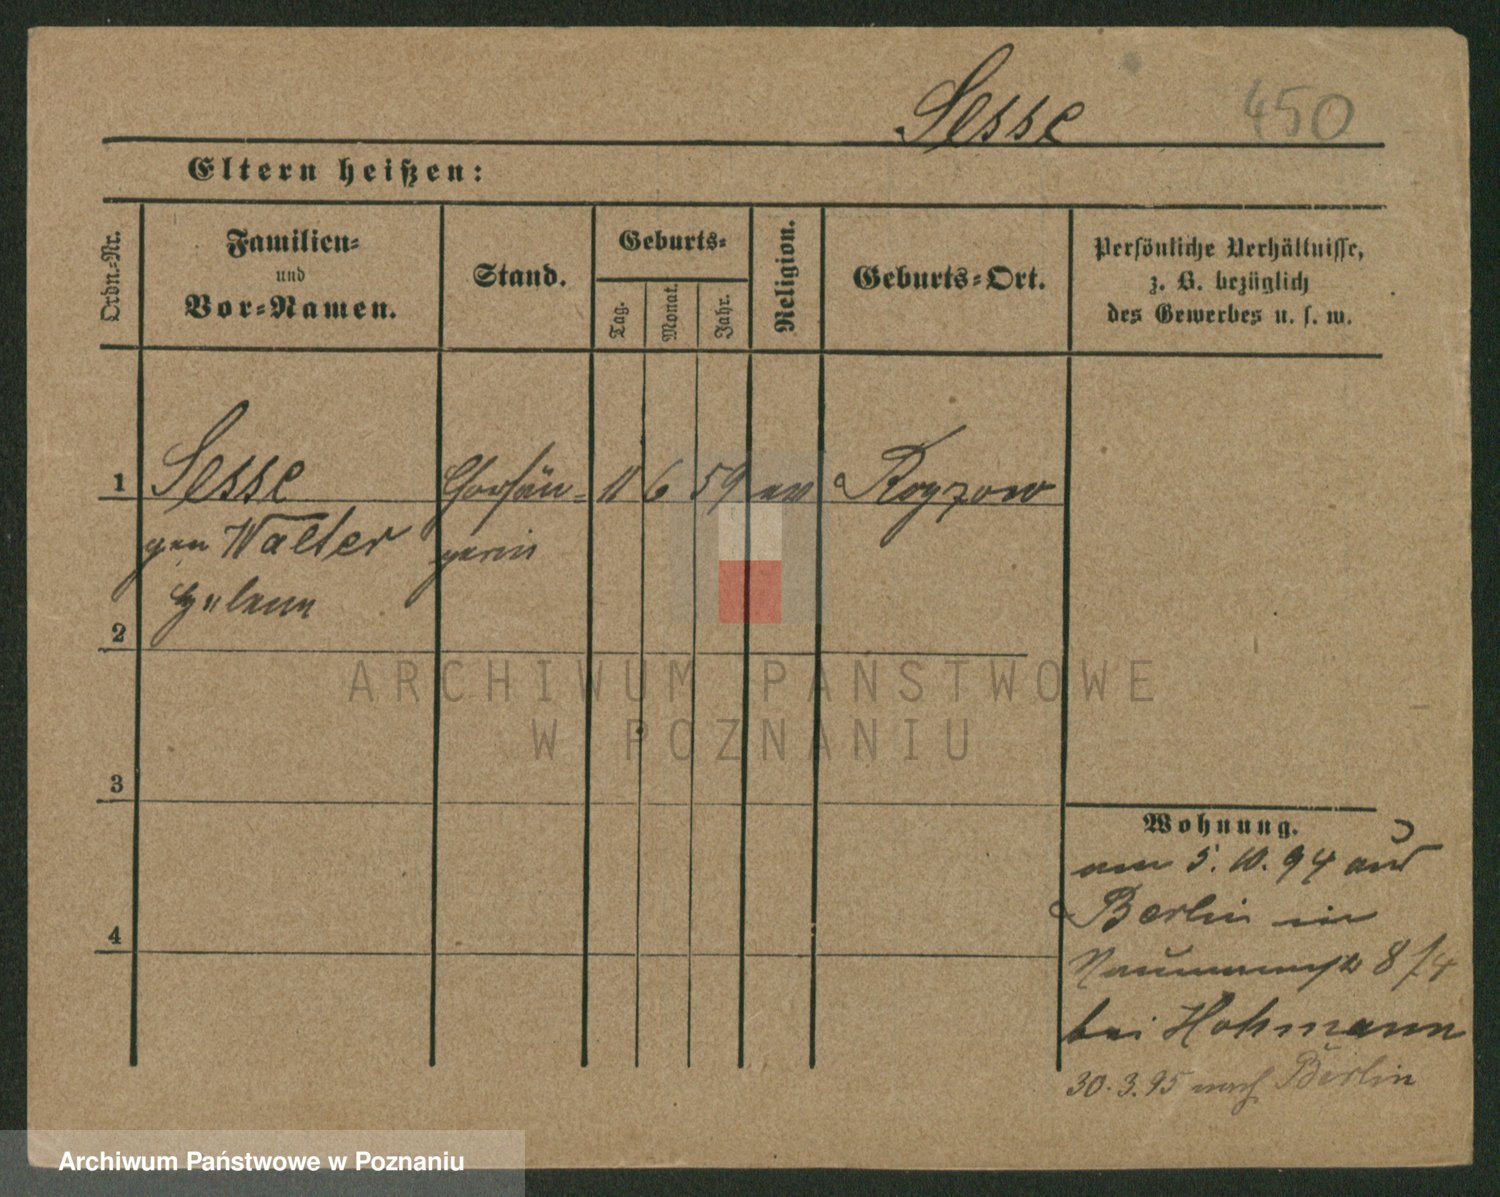 Sesse 450
Eltern heißen:
Ordn.-Nr.
Familien-
und
Vor-Namen.
Stand.
Geburts-
Tag.
Monat.
Jahr.
Religion.
Geburts-Ort.
Persönliche Verhältnisse,
z. B. bezüglich
des Gewerbes u. s. w.
1 Sesse Chorsän- 11 6 59 ev Rogzow
gen Walter gerin
Helene
2
3
4
ARCHIWUM PAŃSTWOWE
W POZNANIU
Wohnung.
am 5. 10. 94 aus
Berlin in
Naumannstr 8
bei Hohmann
30.3.95 nach Berlin
Archiwum Państwowe w Poznaniu